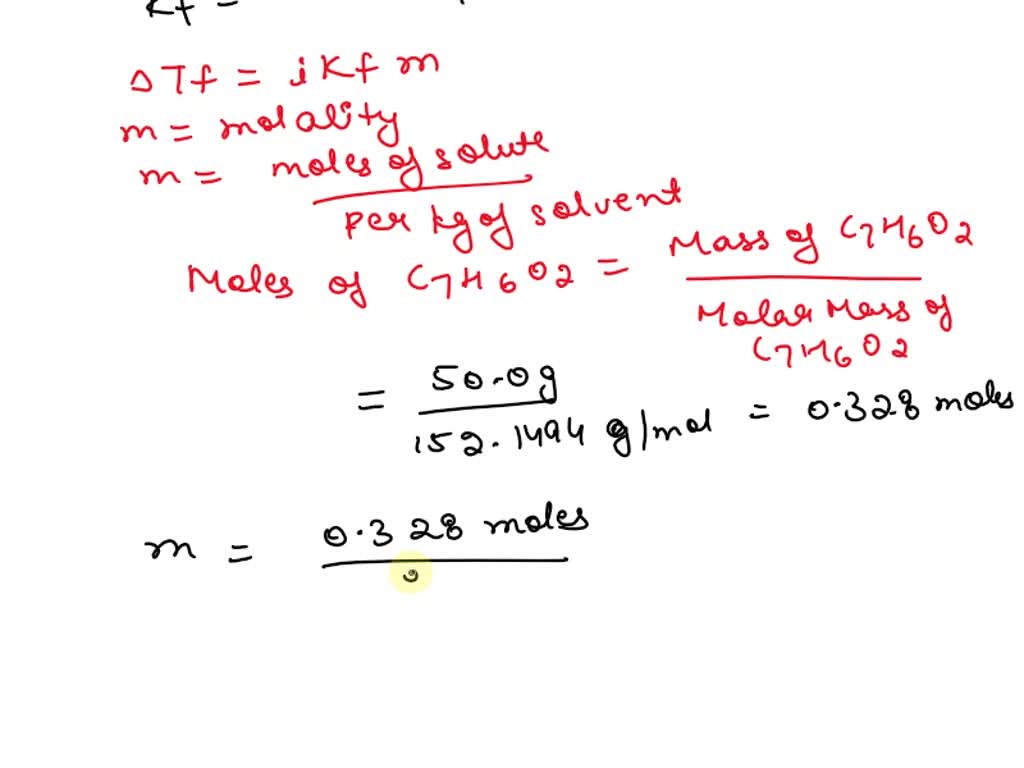 Kf =
ΔTf = iKf m
m = molality
m = moles of solute
per kg of solvent
Moles of C7H6O2 = Mass of C7H6O2
Molar Mass of
C7H6O2
= 50.0g
152.1494 g/mol = 0.328 moles
m = 0.328 moles